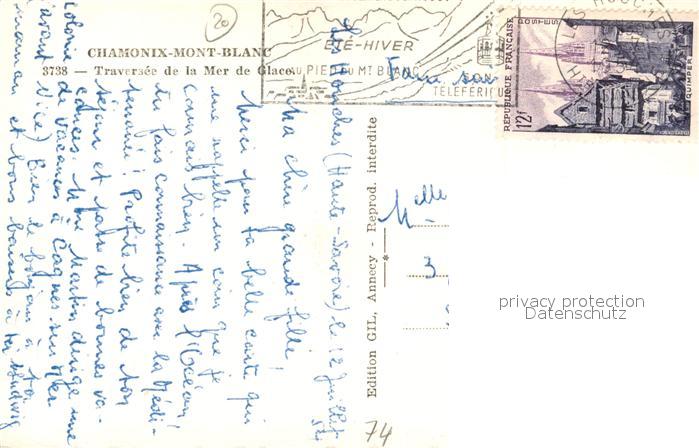 20
CHAMONIX-MONT-BLANC
3738 — Traversée de la Mer de Glace
ÉTÉ-HIVER
AU PIED DU MT BLANC
TELEFERIQU
LES HOUCHES
REPUBLIQUE FRANÇAISE
POSTES
QUIMPER
12f
Faire sui
Les Houches (Haute-Savoie) le 12 Juillet
54
Ma chère grande fille,
Merci pour ta belle carte qui
me rappelle un coin que je
connais bien. Après l'Océan,
tu fais connaissance avec la Médi-
terranée! Profite bien de ton
séjour et passe de bonnes va-
cances. Mme Martin dirige une
colonie de vacances à Cagnes sur Mer
(avant Nice) Bien le bonjour à ta
maman et bons baisers à toi
Edition GIL, Annecy - Reprod. interdite
Melle
3
74
privacy protection
Datenschutz